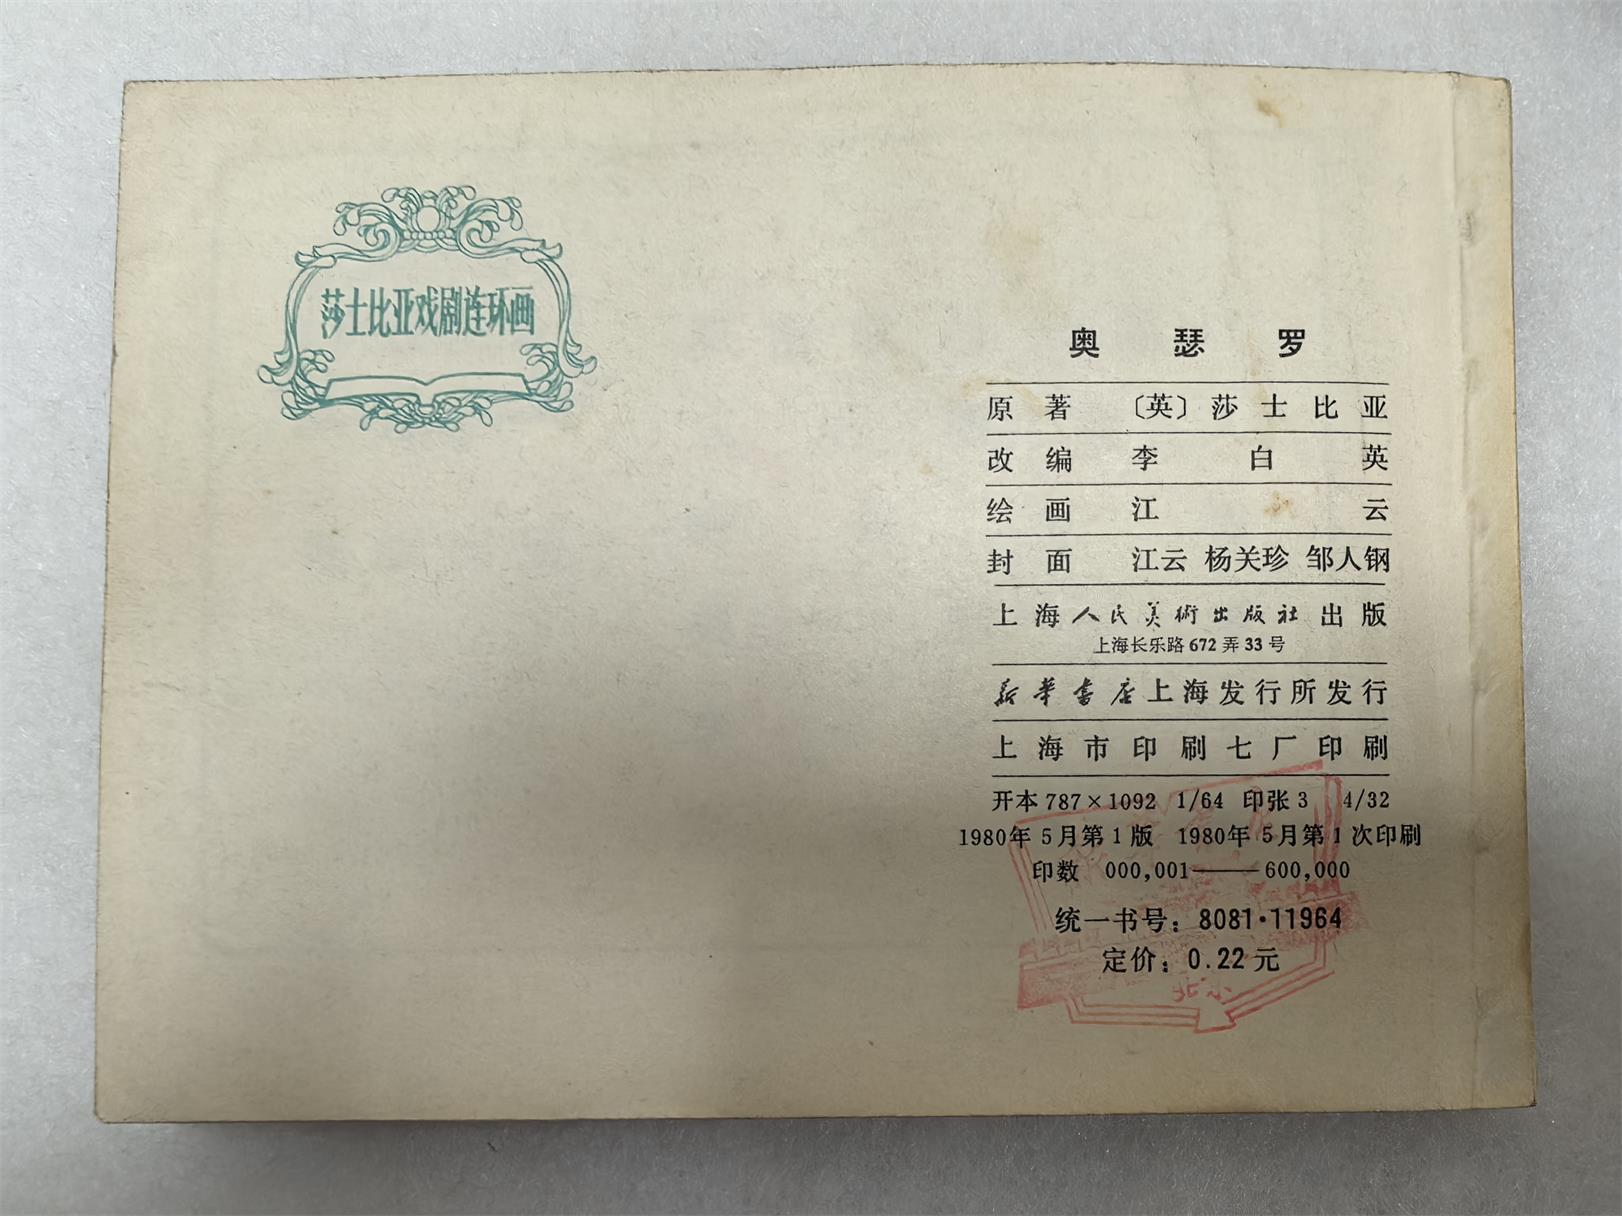 莎士比亚戏剧连环画
奥瑟罗
原著 〔英〕莎士比亚
改编 李白英
绘画 江云
封面 江云 杨关珍 邹人钢
上海人民美術出版社出版
上海长乐路672弄33号
新华书店上海发行所发行
上海市印刷七厂印刷
开本787×1092 1/64 印张3 4/32
1980年5月第1版 1980年5月第1次印刷
印数 000,001——600,000
统一书号：8081·11964
定价：0.22元